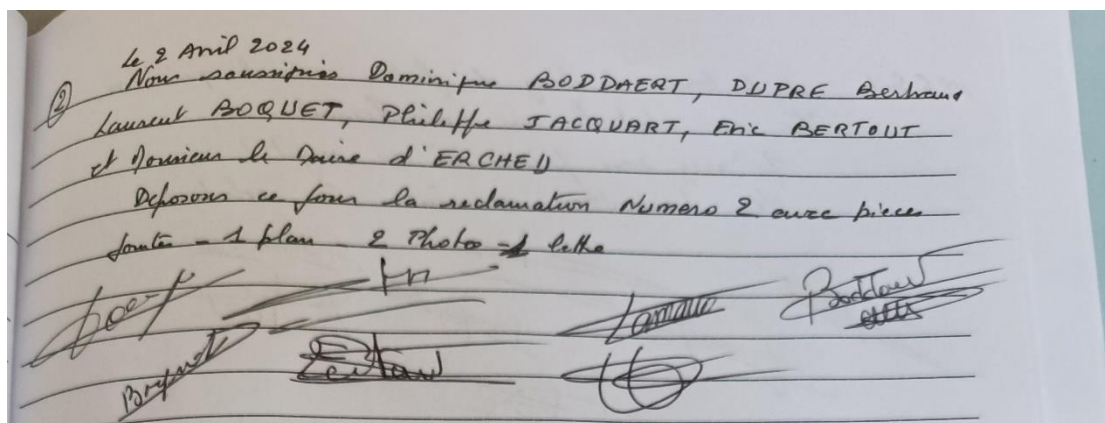 Le 2 Avril 2024
② Nous soussignés Dominique BODDAERT, DUPRE Bertrand
Laurent BOQUET, Philippe JACQUART, Eric BERTOUT
et Monsieur le Maire d'ERCHEU
Déposons ce jour la reclamation Numero 2 avec pieces
jointes - 1 plan - 2 Photo - 1 lettre
Boddaert